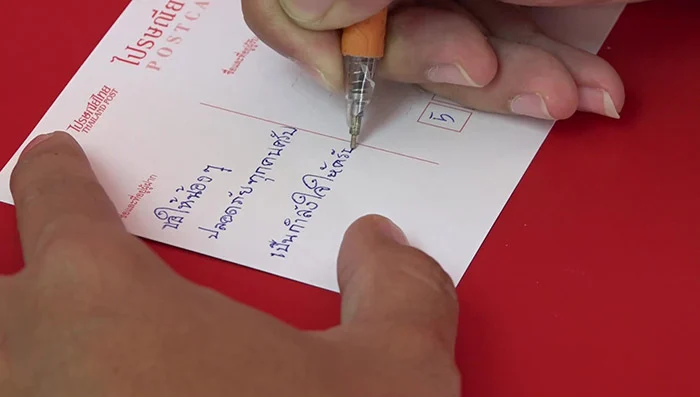 ไปรษณีย
POSTCA
ไปรษณีย์ไทย
THAILAND POST
ชื่อและที่อยู่ผู้ฝาก
ขอให้น้อง ๆ
ปลอดภัยทุกคนครับ
เป็นกำลังใจให้ครับ